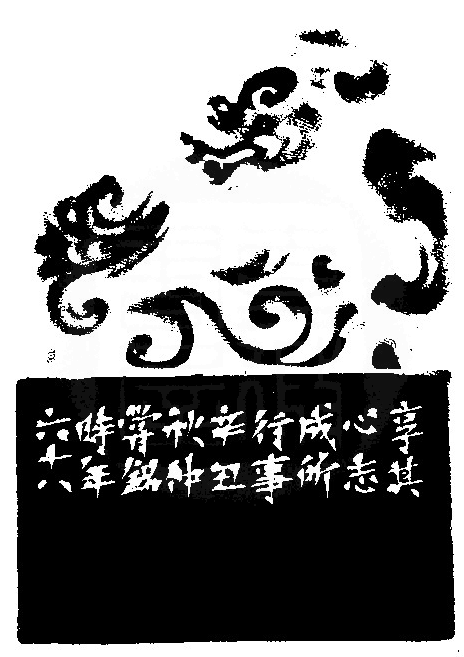 享其
心志
成所
行事
辛丑
秋仲
銘
時年
六十八